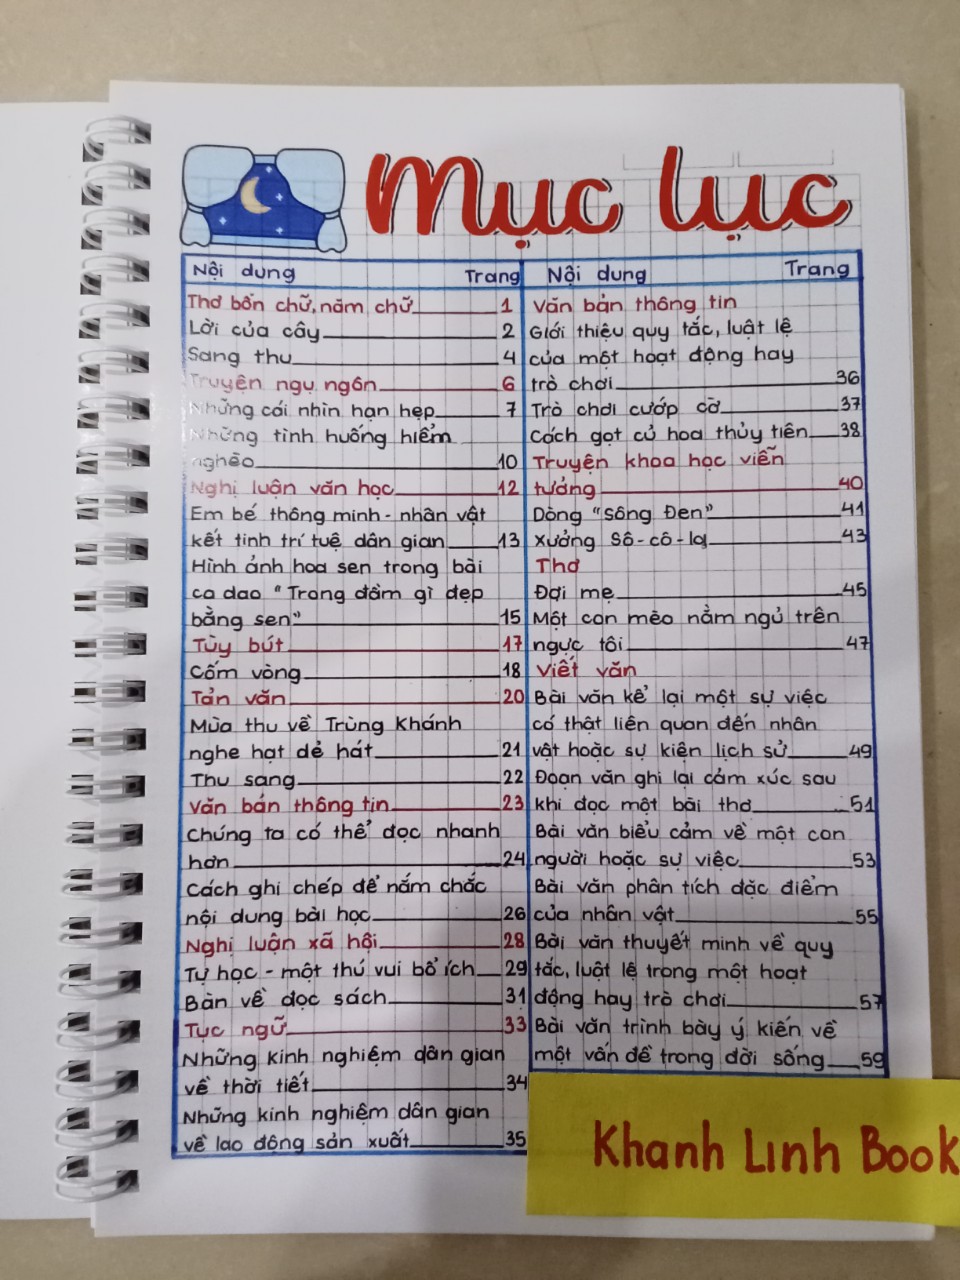 Mục lục
Nội dung Trang
Thơ bốn chữ, năm chữ 1
Lời của cây 2
Sang thu 4
Truyện ngụ ngôn 6
Những cái nhìn hạn hẹp 7
Những tình huống hiểm
nghèo 10
Nghị luận văn học 12
Em bé thông minh - nhân vật
kết tinh trí tuệ dân gian 13
Hình ảnh hoa sen trong bài
ca dao "Trong đầm gì đẹp
bằng sen" 15
Tùy bút 17
Cốm vòng 18
Tản văn 20
Mùa thu về Trùng Khánh
nghe hạt dẻ hát 21
Thu sang 22
Văn bản thông tin 23
Chúng ta có thể đọc nhanh
hơn 24
Cách ghi chép để nắm chắc
nội dung bài học 26
Nghị luận xã hội 28
Tự học - một thú vui bổ ích 29
Bàn về đọc sách 31
Tục ngữ 33
Những kinh nghiệm dân gian
về thời tiết 34
Những kinh nghiệm dân gian
về lao động sản xuất 35
Nội dung Trang
Văn bản thông tin
Giới thiệu quy tắc, luật lệ
của một hoạt động hay
trò chơi 36
Trò chơi cướp cờ 37
Cách gọt củ hoa thủy tiên 38
Truyện khoa học viễn
tưởng 40
Dòng "Sông Đen" 41
Xưởng Sô-cô-la 43
Thơ
Đợi mẹ 45
Một con mèo nằm ngủ trên
ngực tôi 47
Viết văn
Bài văn kể lại một sự việc
có thật liên quan đến nhân
vật hoặc sự kiện lịch sử 49
Đoạn văn ghi lại cảm xúc sau
khi đọc một bài thơ 51
Bài văn biểu cảm về một con
người hoặc sự việc 53
Bài văn phân tích đặc điểm
của nhân vật 55
Bài văn thuyết minh về quy
tắc, luật lệ trong một hoạt
động hay trò chơi 57
Bài văn trình bày ý kiến về
một vấn đề trong đời sống 59
Khanh Linh Book